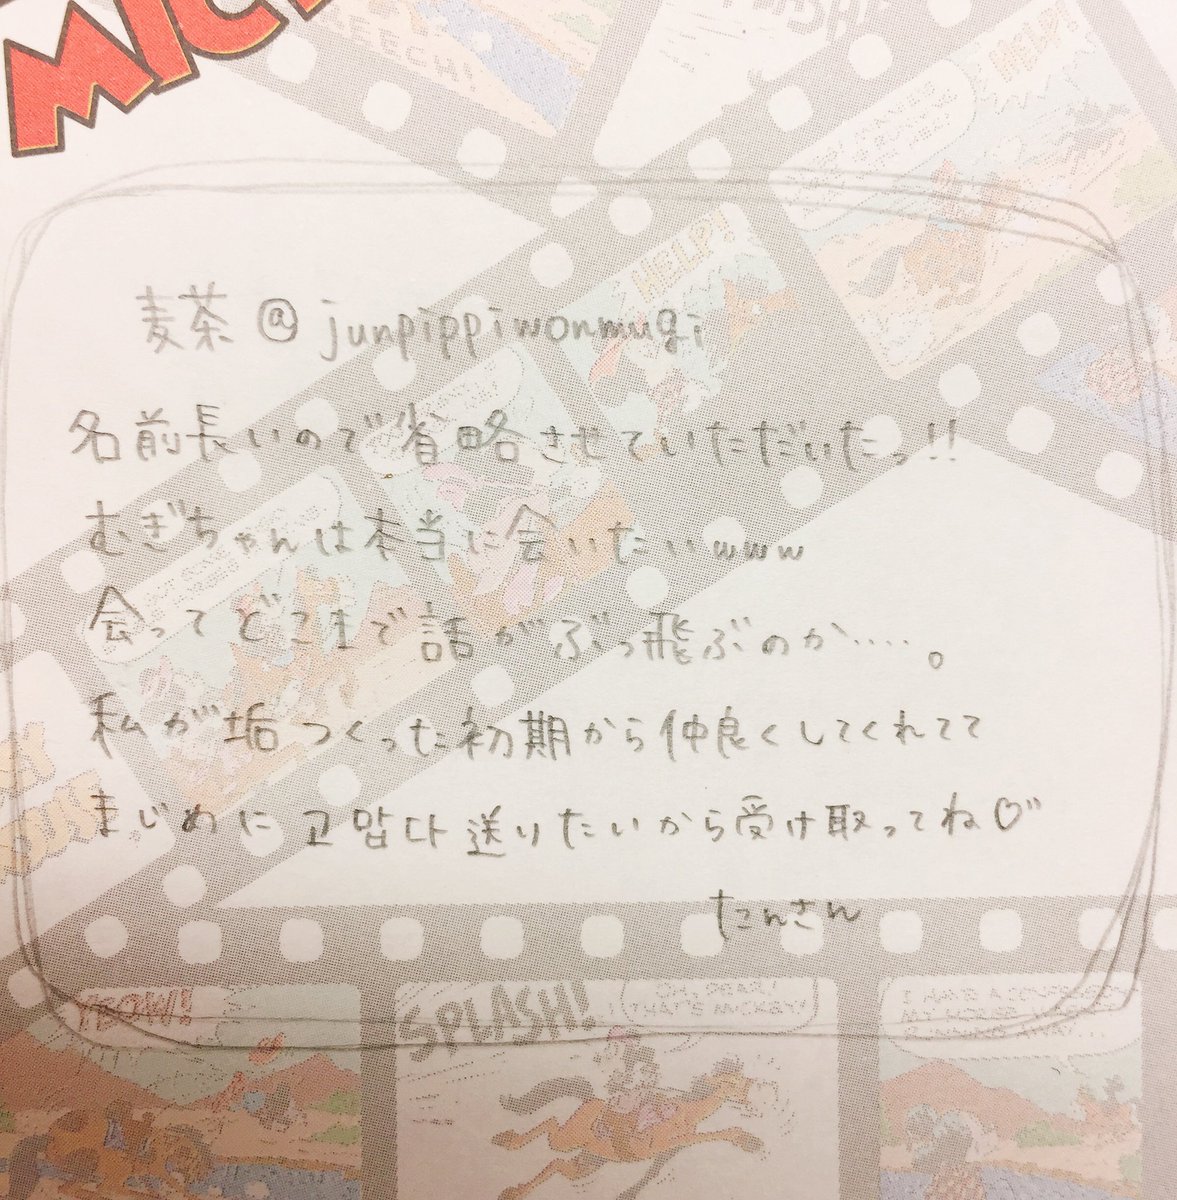 MIC
EECH!
HELP!
HELP!
麦茶@junpippiwonmugi
名前長いので省略させていただいたっ!!
むぎちゃんは本当に会いたいwww
会ってどこまで話がぶっ飛ぶのか‥‥。
私が垢つくった初期から仲良くしてくれてて
まじめに 고맙다 送りたいから受け取ってね♡"
たんさん
YEOW!!
SPLASH!
OH, DEAR!
THAT'S MICKEY!